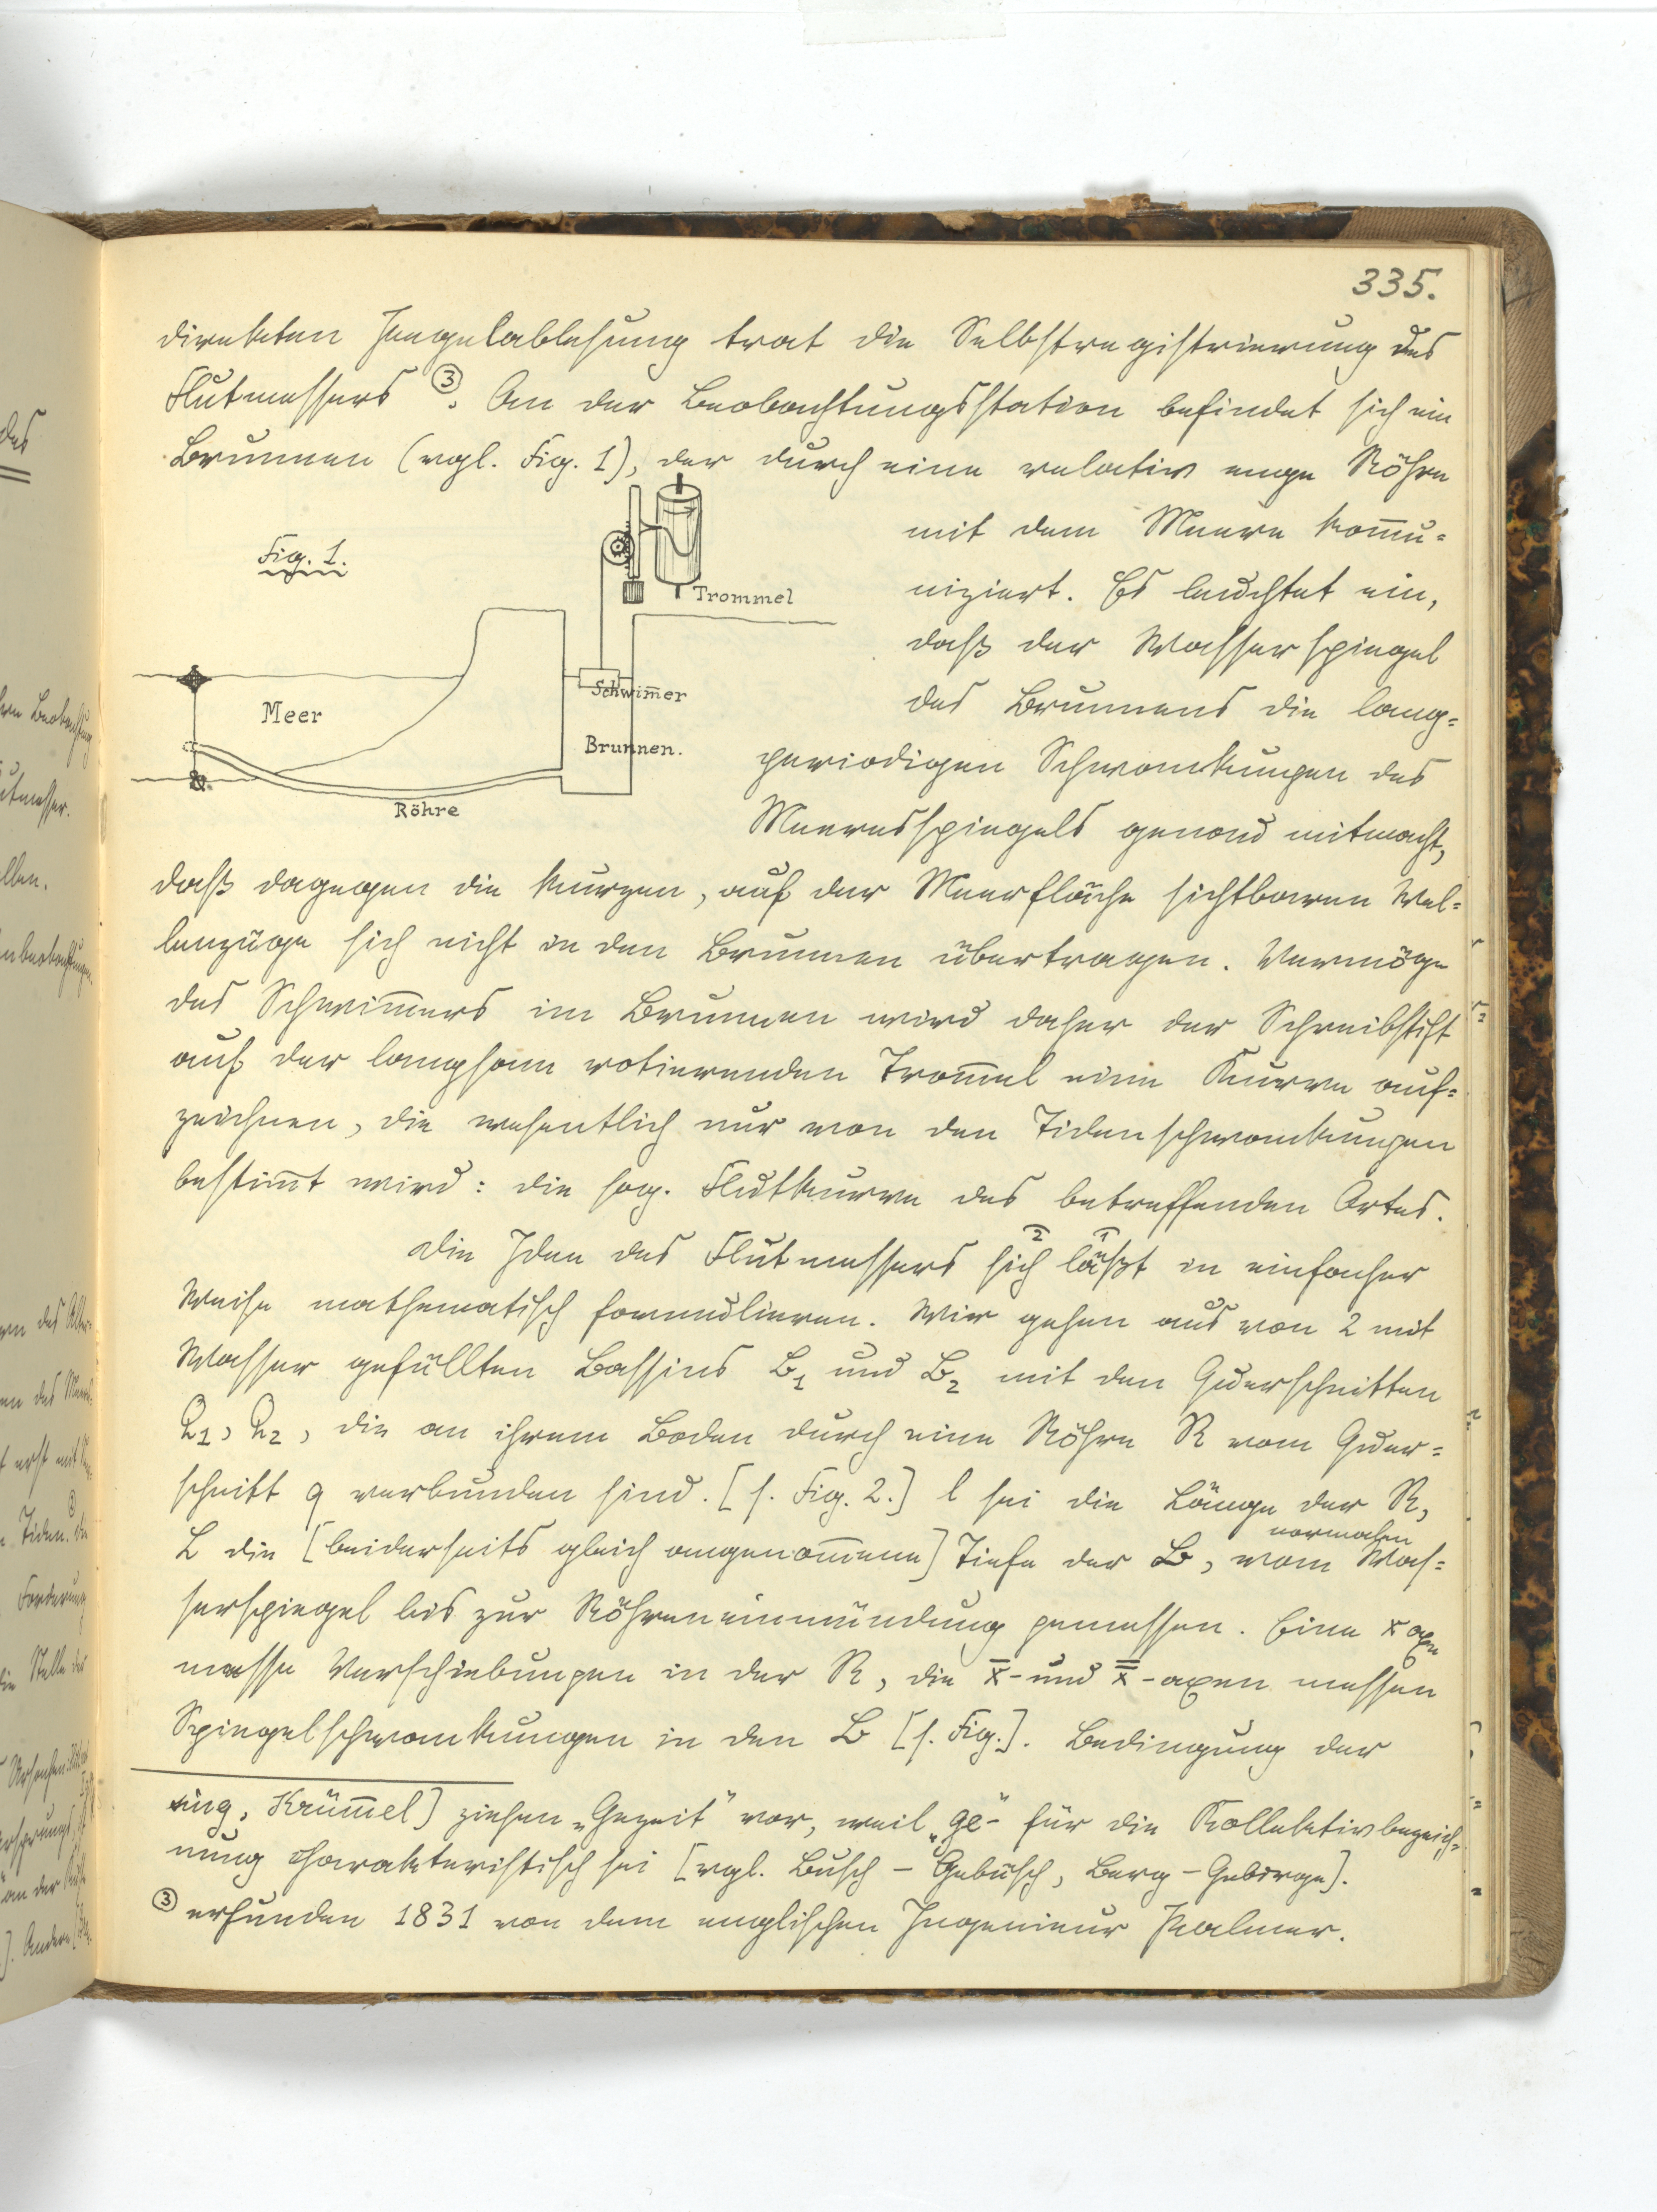 335.
direkten Pegelablesung trat die Selbstregistrierung des
Flutmessers ③. An der Beobachtungsstation befindet sich ein
Brunnen (vgl. Fig. 1), der durch eine relativ enge Röhre
mit dem Meere kom̄u-
niziert. Es leuchtet ein,
daß der Wasserspiegel
des Brunnens die lang-
periodigen Schwankungen des
Meeresspiegels genau mitmacht,
Fig. 1.
Trommel
Schwim̄er
Meer
Brunnen.
Röhre
daß dagegen die kurzen, auf der Meerfläche sichtbaren Wel-
lenzüge sich nicht in den Brunnen übertragen. Vermöge
des Schwim̄ers im Brunnen wird daher der Schreibstift
auf der langsam rotierenden Trom̄el eine Kurve auf-
zeichnen, die wesentlich nur von den Tidenschwankungen
bestim̄t wird: die sog. Flutkurve des betreffenden Ortes.
Die Idee des Flutmessers sich läßt in einfacher
Weise mathematisch formulieren. Wir gehen aus von 2 mit
Wasser gefüllten Bassins B₁ und B₂ mit den Querschnitten
Q₁, Q₂, die an ihrem Boden durch eine Röhre R vom Quer-
schnitt q verbunden sind. [s. Fig. 2.] l sei die Länge der R,
L die [beiderseits gleich angenom̄ene] Tiefe der B, vom normalen Was-
serspiegel bis zur Röhreneinmündung gemessen. Eine x axe
messe Verschiebungen in der R, die x̄- und x̿-axen messen
Spiegelschwankungen in den B [s. Fig.]. Bedingung der
ing, Krüm̄el] ziehen „Gezeit" vor, weil „ge"- für die Kollektivbezeich-
nung charakteristisch sei [vgl. Busch - Gebüsch, Berg - Gebirge].
③ erfunden 1831 von dem englischen Ingenieur Palmer.